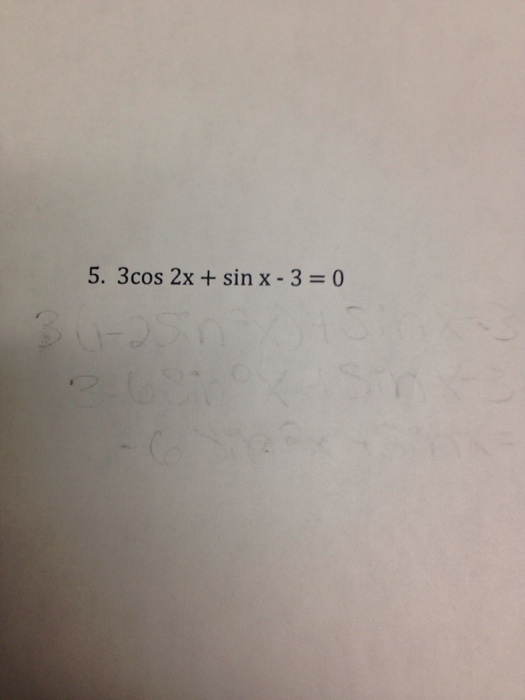 5. 3cos 2x + sin x - 3 = 0
3(1-2sin²x)+sinx-3
3-6sin²x+sinx-3
-6sin²x+sinx=